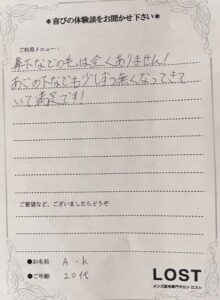 ＊喜びの体験談をお聞かせ下さい＊
ご利用メニュー：
鼻下などの毛は全くありません！
あごの下なども少しずつ無くなってきて
いて満足です！
ご要望など、ございましたらどうぞ
●お名前 A.h
●ご年齢 20代
LOST
メンズ脱毛専門サロン ロスト